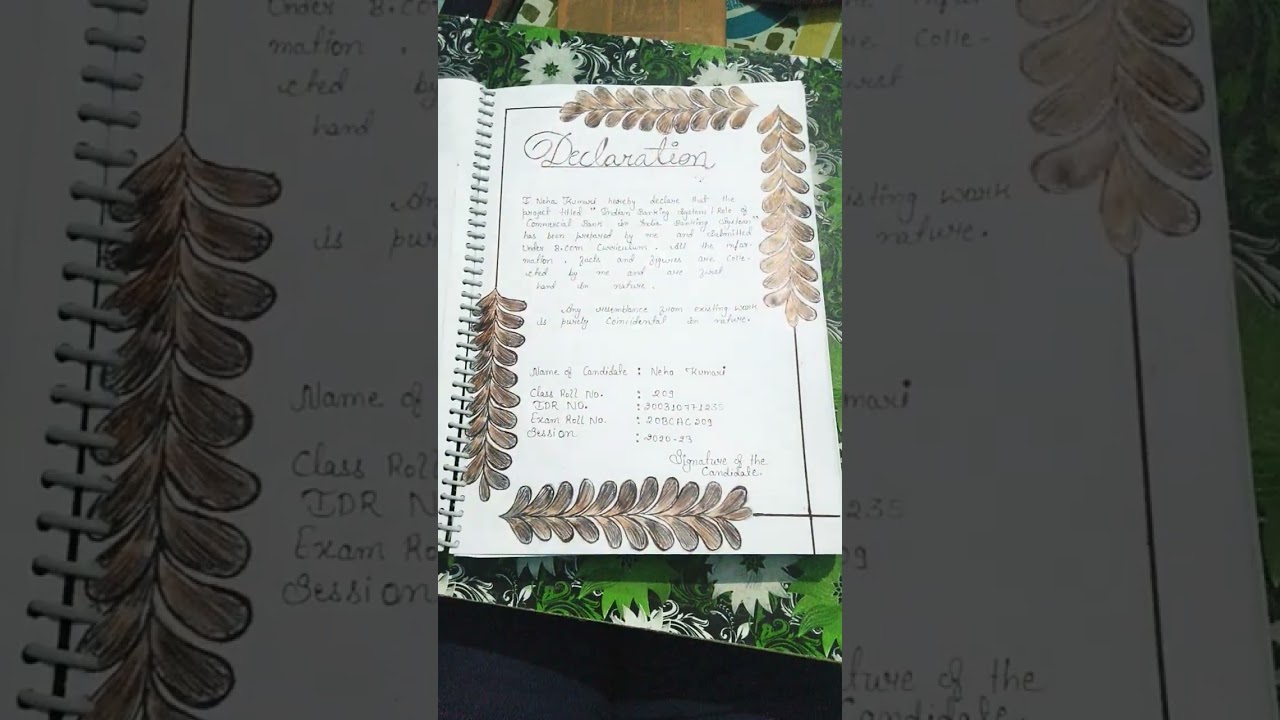 Declaration
I Neha Kumari hereby declare that the
project titled "Indian Banking System / Role of
Commercial Bank in India Banking System"
has been prepared by me and submitted
Under B.Com Curriculum. All the infor-
mation, facts and figures are colle-
cted by me and are first
hand in nature.
Any resemblance from existing work
is purely Coincidental in nature.
Name of Candidate : Neha Kumari
Class Roll No. : 209
IDR NO. : 200310771235
Exam Roll No. : 20BCAC209
Session : 2020-23
Signature of the
Candidate.